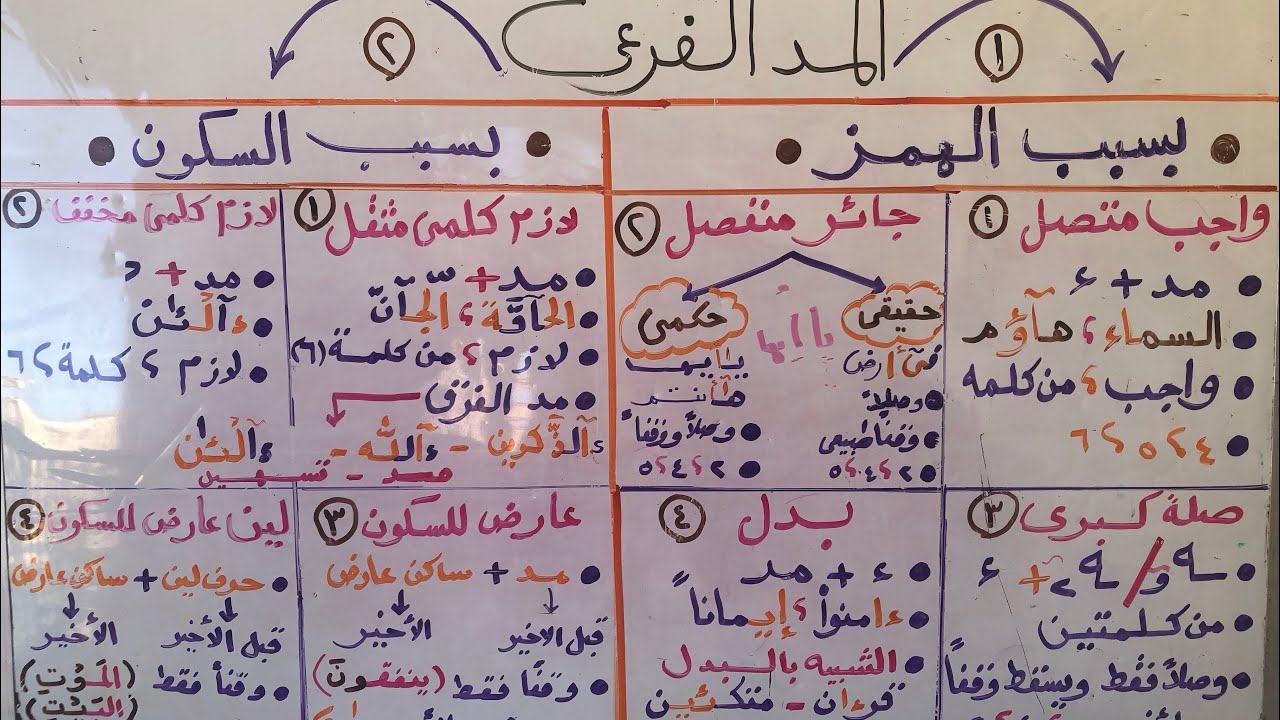 المد الفرعي
١
٢
بسبب الهمز
بسبب السكون
واجب متصل ١
مد + ء
السماء ، هآؤم
واجب ، من كلمه
٤ ، ٥ ، ٦
جائز منفصل ٢
حقيقي
حكمي
فى أرض
وصلاً
وقفاً طبيعي
٢ ، ٤ ، ٥
يأيها
هأنتم
وصلاً ووقفاً
٢ ، ٤ ، ٥
لازم كلمى مثقل ١
مد + ّ
الحآقَّة ، الجآنّ
لازم ، من كلمة (٦)
مد الفرق
ءآلذَّكرين - ءآلله - ءآلْئٰن
مد - تسهيل
لازم كلمى مخفف ٢
مد + ْ
ءآلْئٰن
لازم ، كلمة ، ٦
صلة كبرى ٣
ـه و / ـه ے + ء
من كلمتين
وصلاً فقط ويسقط وقفاً
بدل ٤
ء + مد
ءامنوا ، إيماناً
الشبيه بالبدل
قرءان - متكئين
عارض للسكون ٣
مد + ساكن عارض
قبل الاخير
الأخير
وقفاً فقط (ينفقون)
لين عارض للسكون ٤
حرف لين + ساكن عارض
قبل الأخير
الأخير
وقفاً فقط (المَوْتِ)
(البَيْتِ)